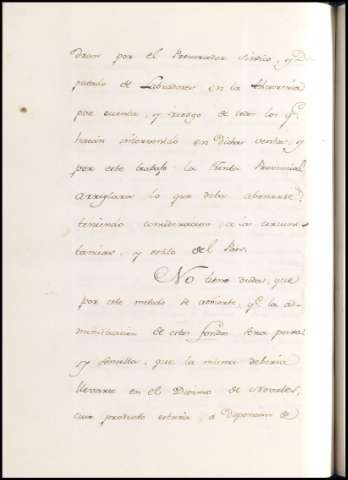 dran por el Procurador Sindico, y Di
putado de Labradores en la Thesoreria
por cuenta, y riesgo de todos los q.e
hacian intervenido en dichas ventas, y
por este trabajo la Junta Provincial
arreglara lo que deba abonarse,
teniendo consideracion a las circuns
tancias, y estilo del Pais.
No tiene dudas, que
por este metodo se advierte, q.e la ad-
ministracion de estos fondos sera pura
y sencilla, que la misma deberia
llevarse en el Diezmo de Novales,
cuio producto estaria, a disposicion de